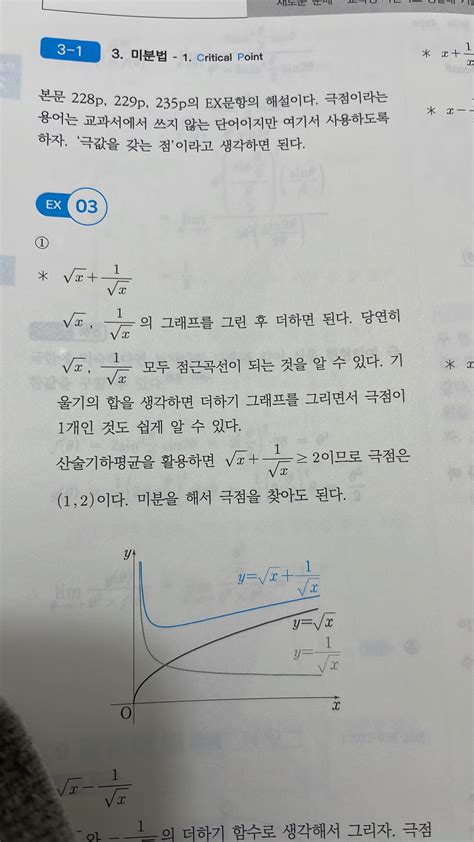 3-1 3. 미분법 - 1. Critical Point
본문 228p, 229p, 235p의 EX문항의 해설이다. 극점이라는
용어는 교과서에서 쓰지 않는 단어이지만 여기서 사용하도록
하자. ‘극값을 갖는 점’이라고 생각하면 된다.
EX 03
①
* √x + 1/√x
√x, 1/√x 의 그래프를 그린 후 더하면 된다. 당연히
√x, 1/√x 모두 점근곡선이 되는 것을 알 수 있다. 기
울기의 합을 생각하면 더하기 그래프를 그리면서 극점이
1개인 것도 쉽게 알 수 있다.
산술기하평균을 활용하면 √x + 1/√x ≥ 2이므로 극점은
(1, 2)이다. 미분을 해서 극점을 찾아도 된다.
y
y=√x + 1/√x
y=√x
y=1/√x
O
x
√x - 1/√x
와 - 1/√x 의 더하기 함수로 생각해서 그리자. 극점
* x + 1/
* x -
* x